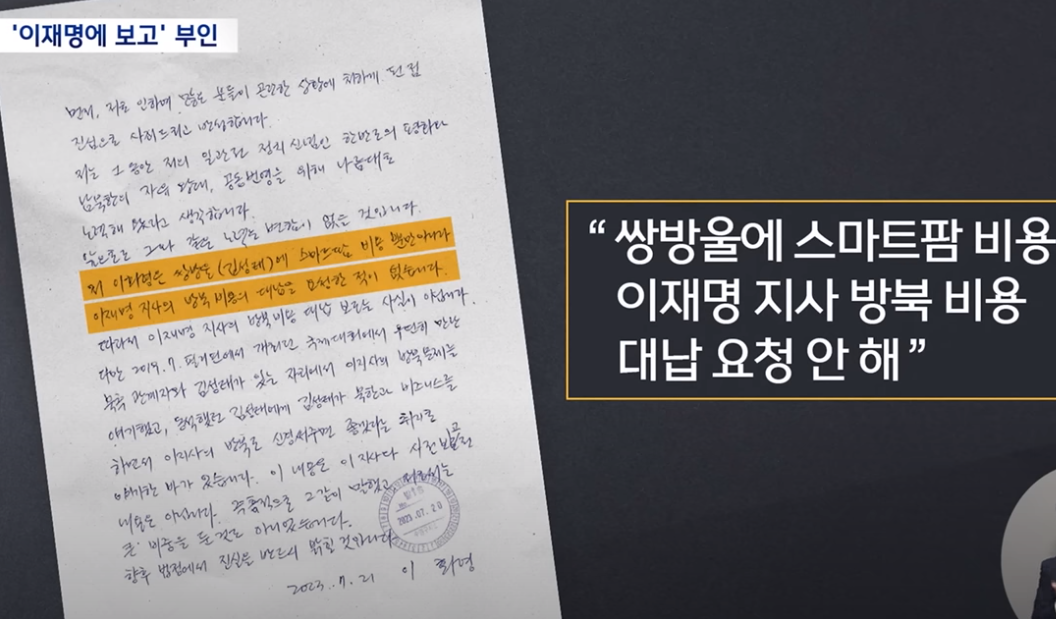 '이재명에 보고' 부인
먼저, 저로 인하여 많은 분들이 곤란한 상황에 처하게 된 점
진심으로 사죄드리고 반성합니다.
저는 그 동안 저의 일관된 정치신념인 한반도의 평화나
남북한의 자유 왕래, 공동번영을 위해 나름대로
노력해 왔다고 생각합니다.
앞으로도 그와 같은 노력은 변함이 없을 것입니다.
저 이화영은 쌍방울(김성태)에 스마트팜 비용 뿐만아니라
이재명 지사의 방북 비용의 대납을 요청한 적이 없습니다.
따라서 이재명 지사의 방북비용 대납 보도는 사실이 아닙니다.
다만 2019.7. 필리핀에서 개최된 국제대회에서 우연히 만난
북측 관계자와 김성태가 있는 자리에서 이지사의 방북문제를
얘기했고, 동석했던 김성태에게 김성태가 북한과 비즈니스를
하면서 이지사의 방북도 신경써주면 좋겠다는 취지로
얘기한 바가 있습니다. 이 내용은 이지사와 사전 보고된
내용은 아닙니다. 즉흥적으로 그같이 말했고, 저로서는
큰 비중을 둔 것도 아니었습니다.
향후 법정에서 진실을 반드시 밝힐 것입니다
2023. 7. 21 이 화영
2023.07.20
“ 쌍방울에 스마트팜 비용
이재명 지사 방북 비용
대납 요청 안 해 ”